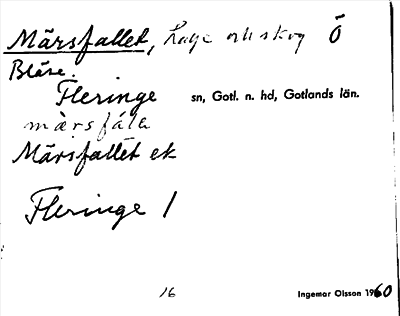 Märsfallet, Hage och skog Ö
Bläse.
Fleringe sn, Gotl. n. hd, Gotlands län.
märsfála
Märsfallet ek
Fleringe 1
16 Ingemar Olsson 1960